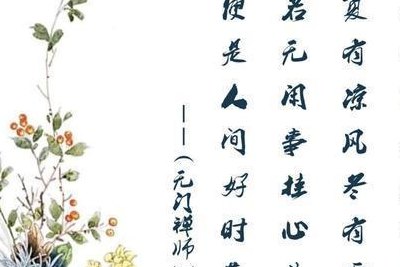 夏有凉风冬有
若无闲事挂心
便是人间好时
——(无门禅师